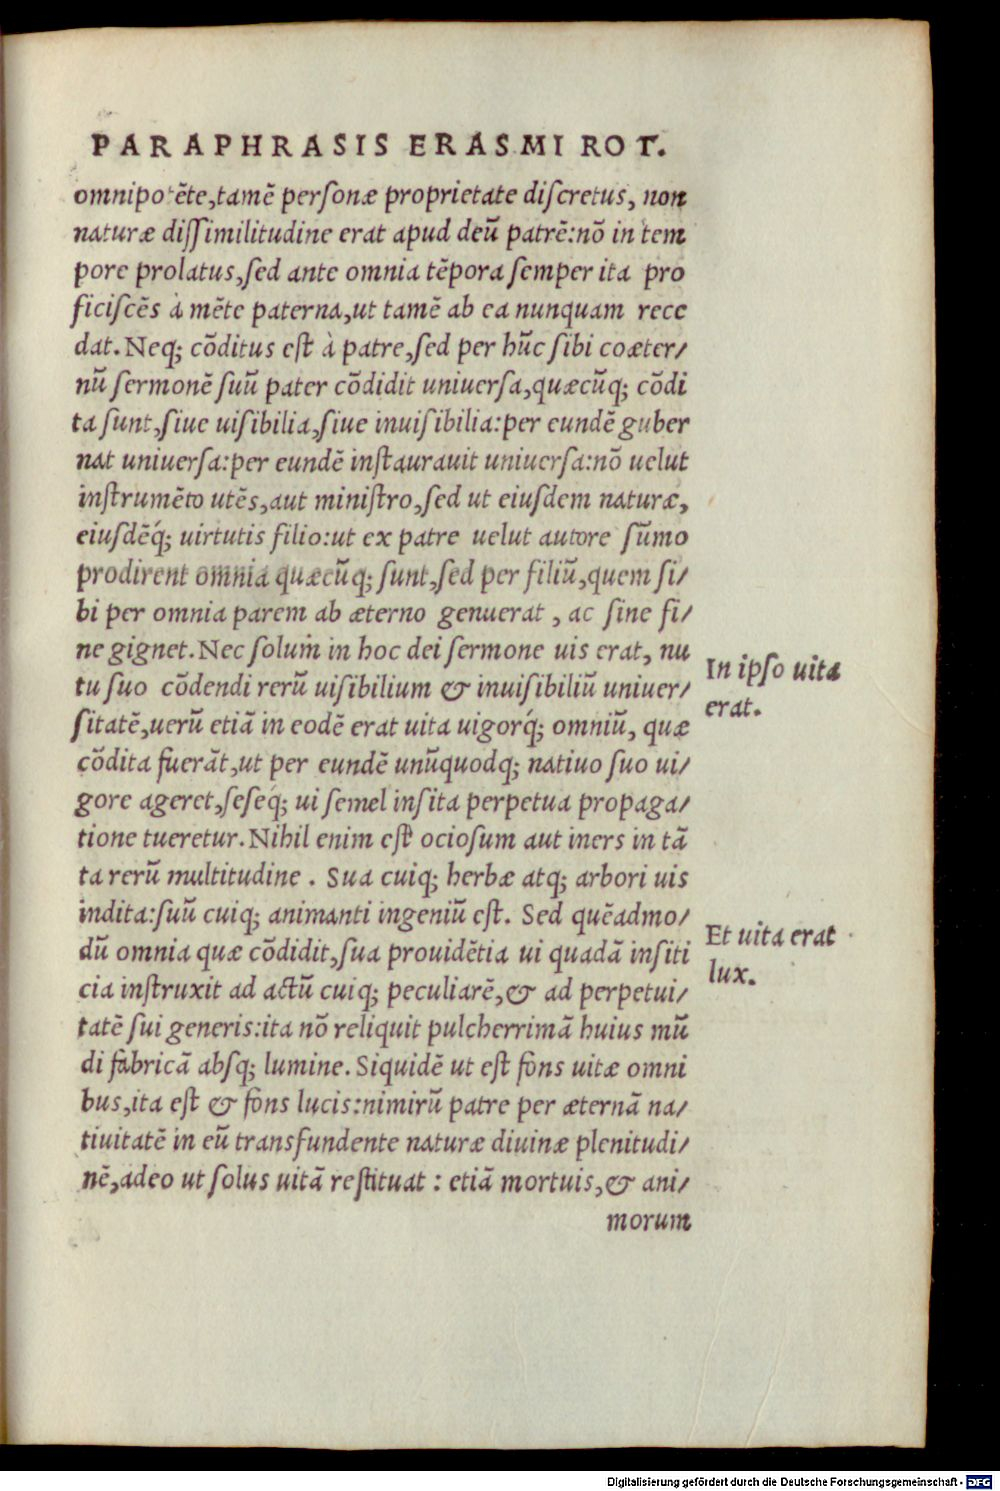 PARAPHRASIS ERASMI ROT.
omnipotẽte,tamẽ perſonæ proprietate diſcretus, non
naturæ diſſimilitudine erat apud deũ patrẽ:nõ in tem
pore prolatus,ſed ante omnia tẽpora ſemper ita pro
ficiſcẽs à mẽte paterna,ut tamẽ ab ea nunquam rece
dat. Neq; cõditus eſt à patre,ſed per hũc ſibi coæter/
nũ ſermonẽ ſuũ pater cõdidit uniuerſa,quæcũq; cõdi
ta ſunt,ſiue uiſibilia,ſiue inuiſibilia:per eundẽ guber
nat uniuerſa:per eundẽ inſtaurauit uniuerſa:nõ uelut
inſtrumẽto utẽs,aut miniſtro,ſed ut eiuſdem naturæ,
eiuſdẽq́; uirtutis filio:ut ex patre uelut autore ſũmo
prodirent omnia quæcũq; ſunt,ſed per filiũ,quem ſi/
bi per omnia parem ab æterno genuerat , ac ſine fi/
ne gignet. Nec ſolum in hoc dei ſermone uis erat, nu
tu ſuo cõdendi rerũ uiſibilium & inuiſibiliũ uniuer/
ſitatẽ,uerũ etiã in eodẽ erat uita uigorq́; omniũ, quæ
cõdita fuerãt,ut per eundẽ unũquodq; natiuo ſuo ui/
gore ageret,ſeſeq́; ui ſemel inſita perpetua propaga/
tione tueretur. Nihil enim eſt ocioſum aut iners in tã
ta rerũ multitudine . Sua cuiq; herbæ atq; arbori uis
indita:ſuũ cuiq; animanti ingeniũ eſt. Sed quẽadmo/
dũ omnia quæ cõdidit,ſua prouidẽtia ui quadã inſiti
cia inſtruxit ad actũ cuiq; peculiarẽ,& ad perpetui/
tatẽ ſui generis:ita nõ reliquit pulcherrimã huius mũ
di fabricã abſq; lumine. Siquidẽ ut eſt fons uitæ omni
bus,ita eſt & fons lucis:nimirũ patre per æternã na/
tiuitatẽ in eũ transfundente naturæ diuinæ plenitudi/
nẽ,adeo ut ſolus uitã reſtituat : etiã mortuis,& ani/
morum
In ipſo uita
erat.
Et uita erat
lux.
Digitalisierung gefördert durch die Deutsche Forschungsgemeinschaft - DFG